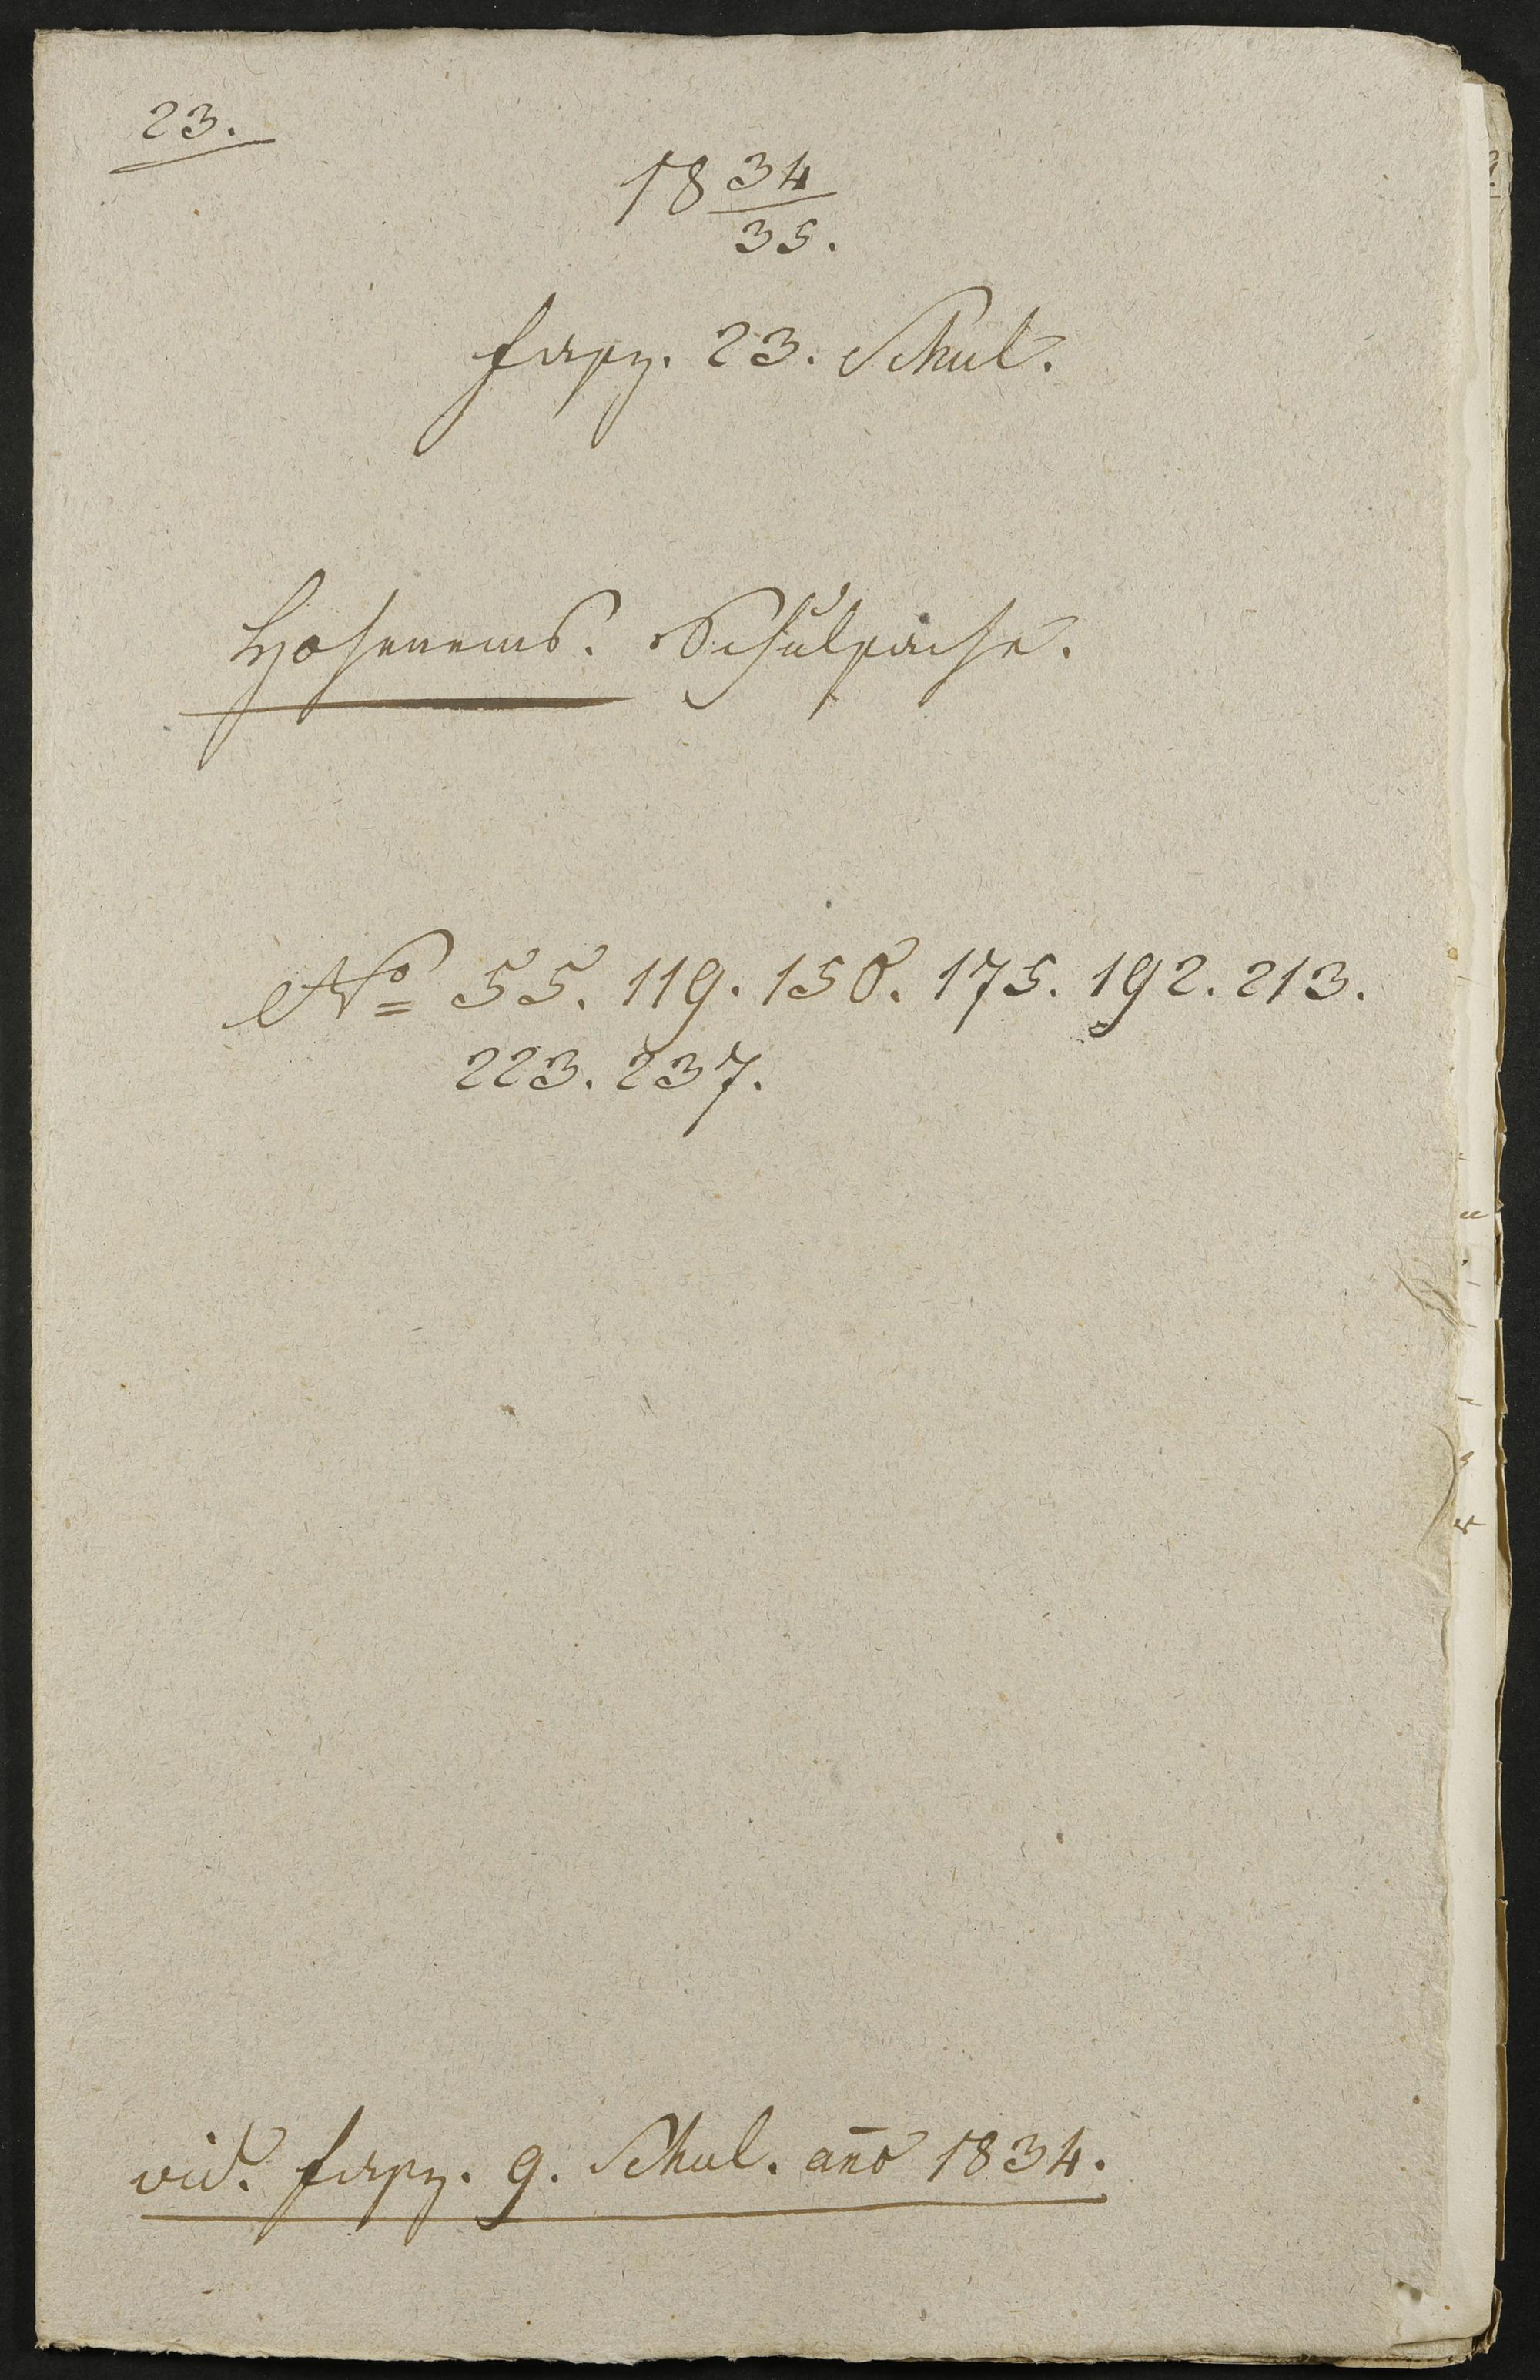 23.
18 34/35.
fasz. 23. Schul.
Hohenems. Schulsache.
No 55. 119. 158. 175. 192. 213.
223. 237.
vid. fasz. 9. Schul. año 1834.